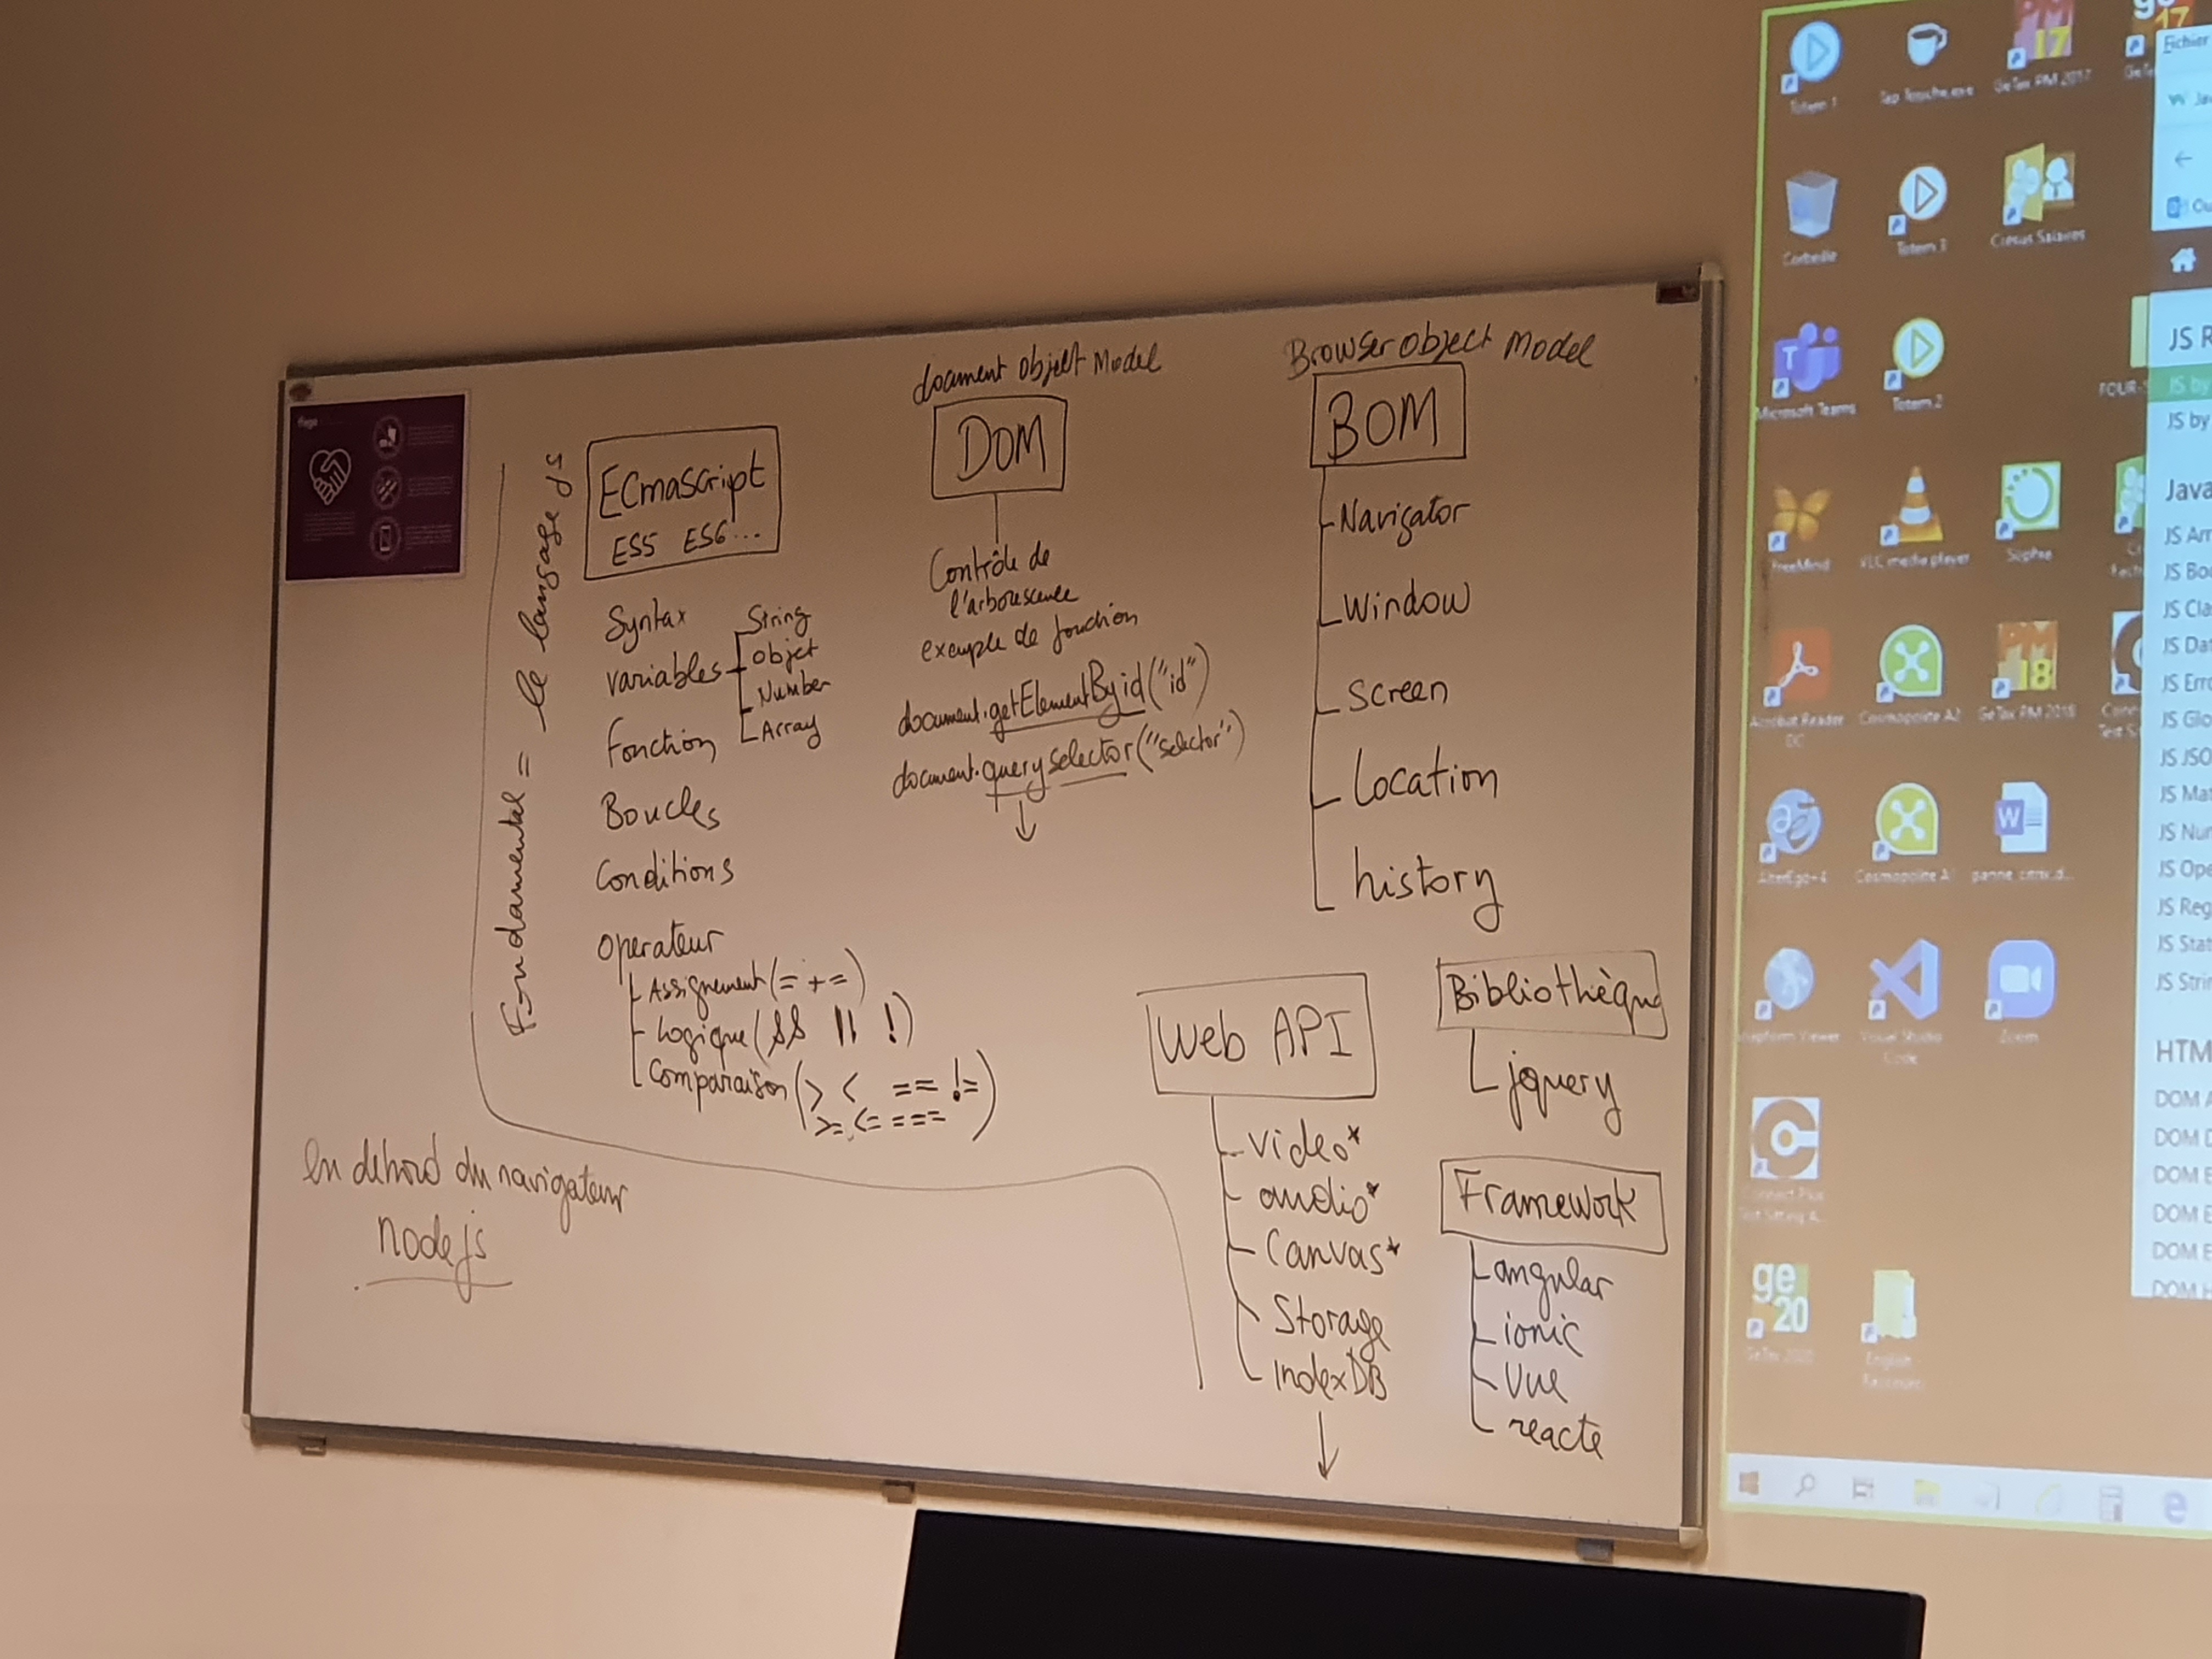 Fondamental = le langage js
ECmaScript
ES5 ES6...
Syntax
variables
String
Objet
Number
Array
Fonction
Boucles
Conditions
Operateur
Assignement (= +=)
Logique (&& || !)
Comparaison (> < == !=)
>= <= ===
document Object Model
DOM
Contrôle de
l'arborescence
exemple de fonction
document.getElementByid("id")
document.queryselector("selector")
BrowserObject Model
BOM
Navigator
Window
Screen
Location
history
Web API
video*
audio*
Canvas*
Storage
IndexDB
Bibliothèque
jquery
Framework
angular
ionic
Vue
reacte
En dehord du navigateur
Nodejs
Totem 1
GeTax PM 2017
Corbeille
Totem 3
Crésus Salaires
Microsoft Teams
Totem 2
FreeMind
VLC media player
Sophos
Acrobat Reader
DC
Cosmopolite A2
GeTax PM 2018
AlterEgo+4
Cosmopolite A1
Visual Studio
Code
Zoom
Connect Plus
GeTax 2020
English
Fichier
JS by
JS by
Java
JS Arr
JS Boo
JS Cla
JS Dat
JS Erro
JS Glo
JS JSO
JS Mat
JS Nu
JS Ope
JS Reg
JS Stat
JS Strin
HTM
DOM A
DOM D
DOM E
DOM E
DOM E
DOM H